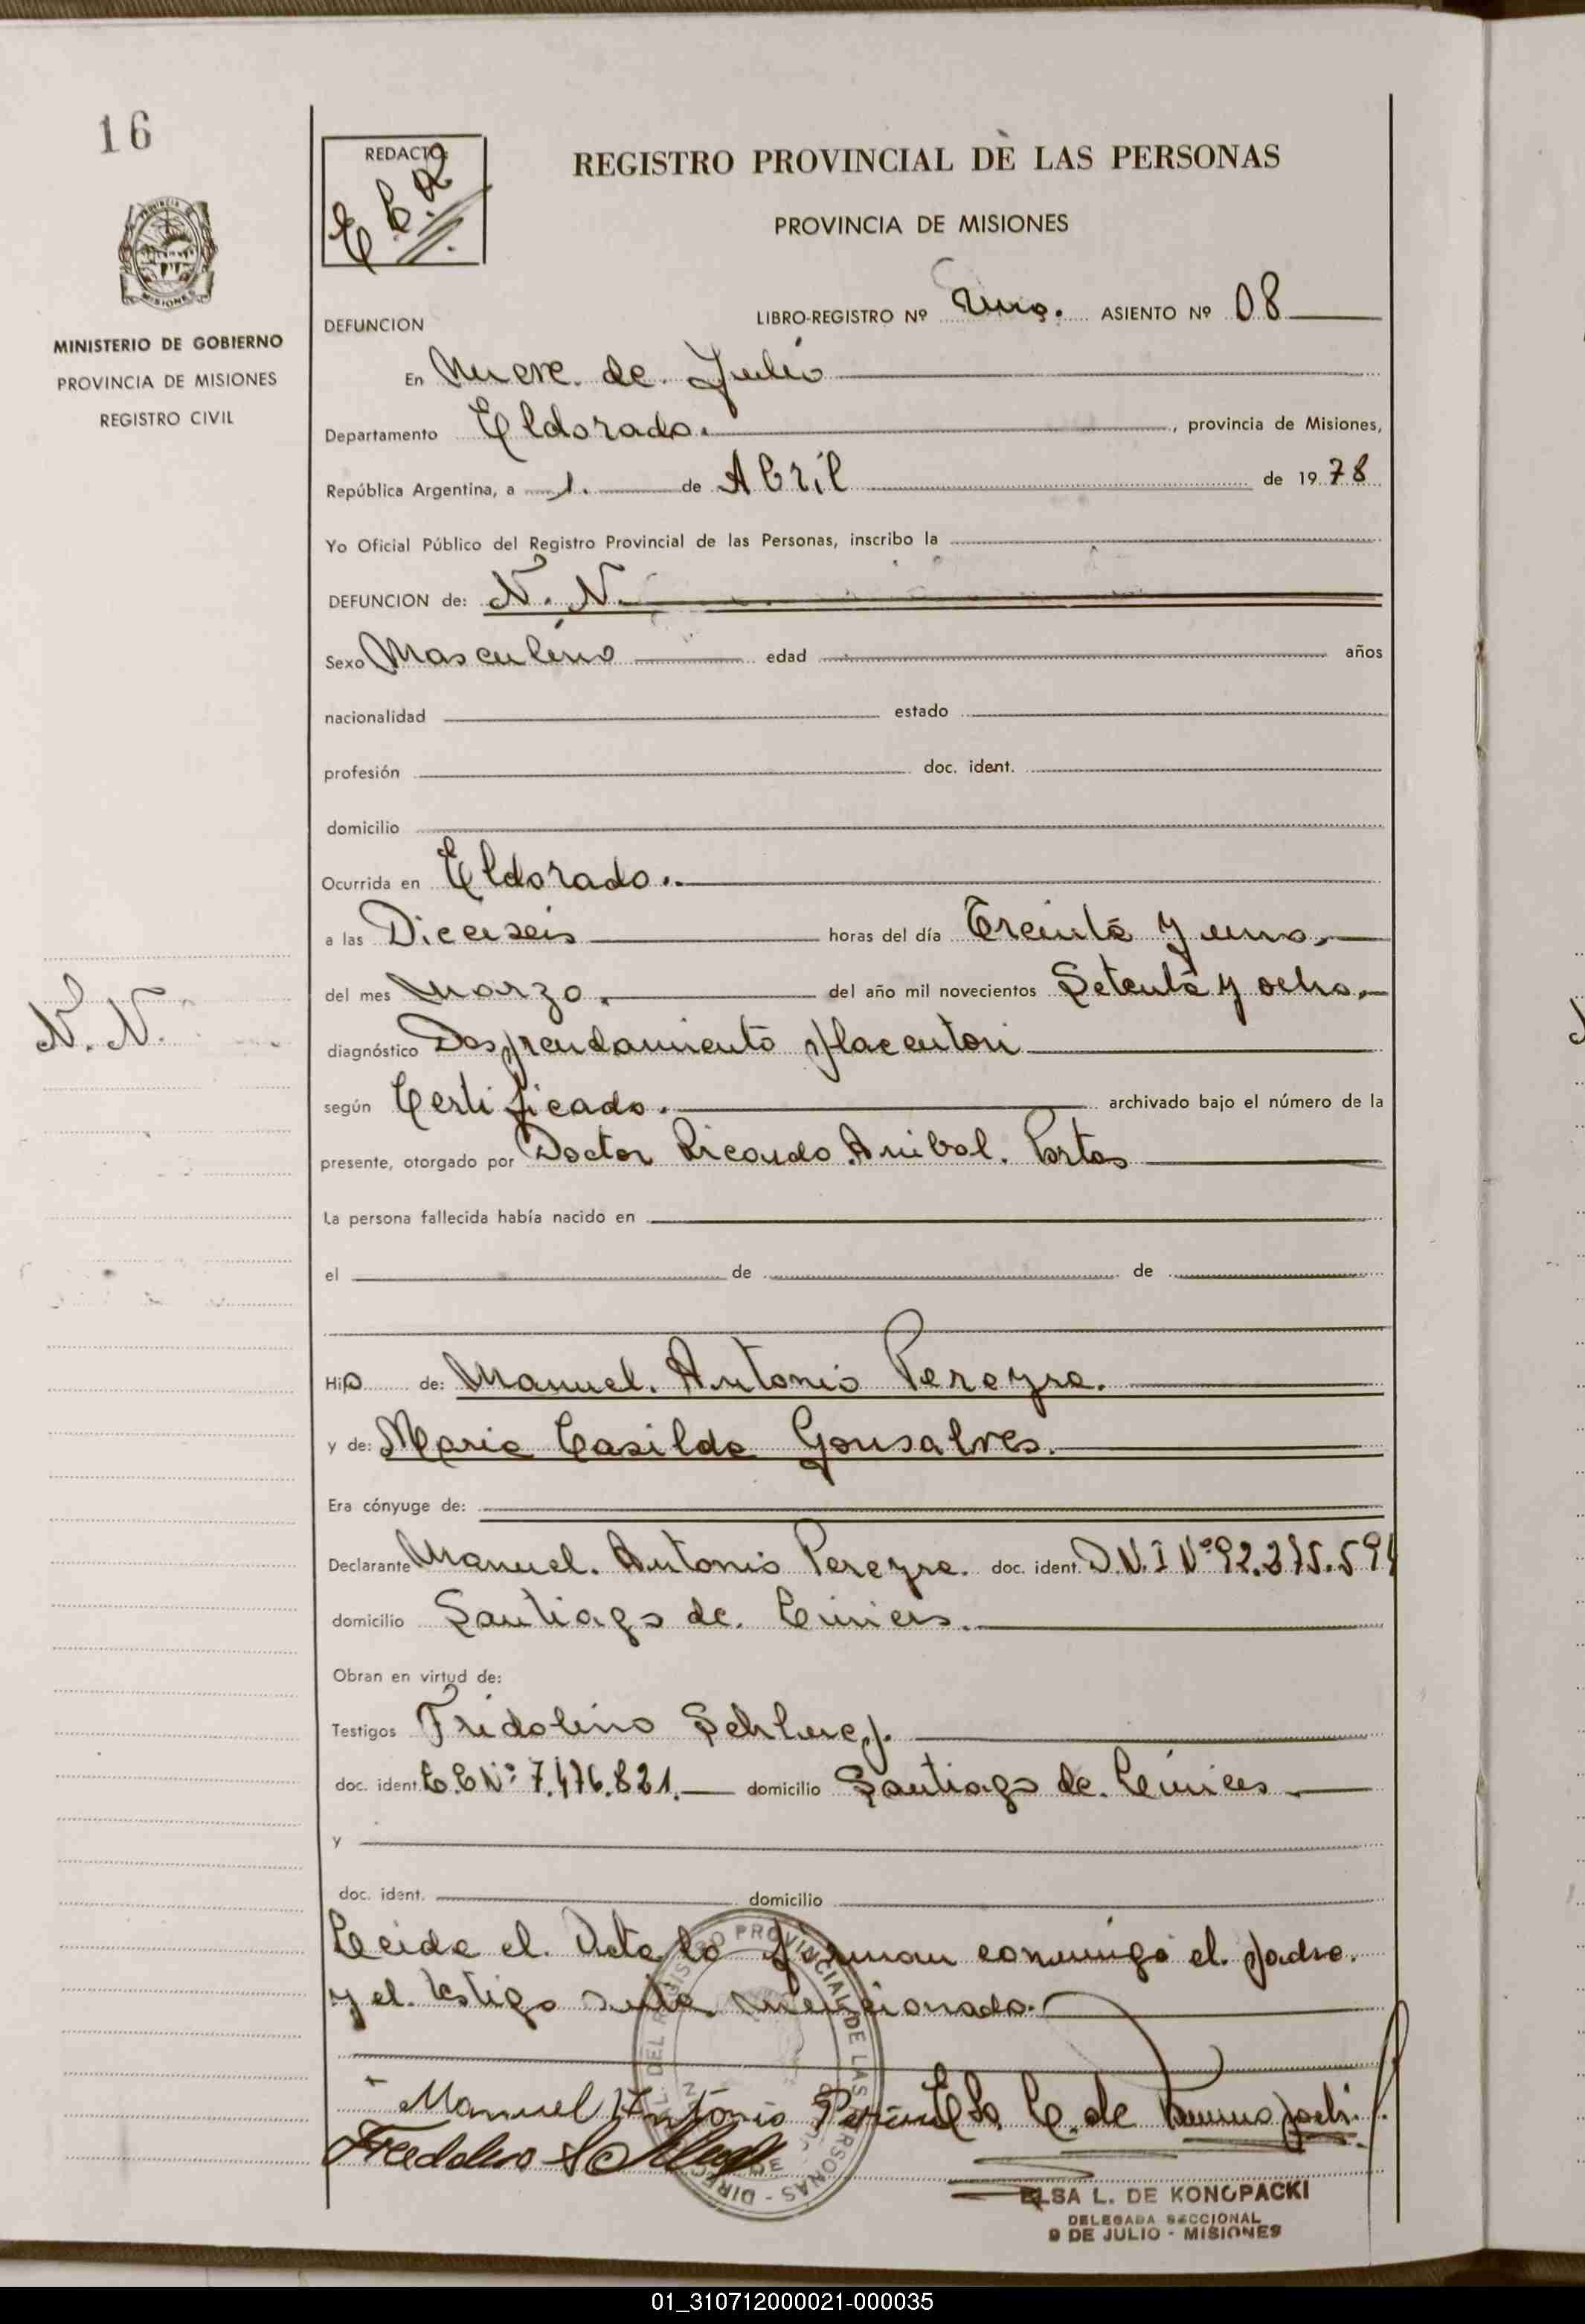 16
REDACTO:
REGISTRO PROVINCIAL DE LAS PERSONAS
PROVINCIA DE MISIONES
MINISTERIO DE GOBIERNO
PROVINCIA DE MISIONES
REGISTRO CIVIL
DEFUNCION
LIBRO-REGISTRO Nº Uno. ASIENTO Nº 08
En Nueve de Julio
Departamento Eldorado. , provincia de Misiones,
República Argentina, a 1. de Abril de 1978
Yo Oficial Público del Registro Provincial de las Personas, inscribo la
DEFUNCION de: N. N.
Sexo Masculino edad años
nacionalidad estado
profesión doc. ident.
domicilio
Ocurrida en Eldorado.
a las Dieciseis horas del día Treinta y uno.
del mes Marzo. del año mil novecientos Setenta y ocho.
N. N.
diagnóstico Desprendamiento
según Certificado. archivado bajo el número de la
presente, otorgado por Doctor Ricardo Anibal.
La persona fallecida había nacido en
el de de
Hijo de: Manuel. Antonio Pereyra.
y de: Maria Casilda Gonsalves.
Era cónyuge de:
Declarante Manuel. Antonio Pereyra. doc. ident. D.N.I Nº
domicilio Santiago de. Liniers.
Obran en virtud de:
Testigos Fridolino
doc. ident. Nº 7.476.821. domicilio Santiago de. Liniers
y
doc. ident. domicilio
Leida el Acta la firman conmigo el padre.
y el testigo mencionado.
Manuel Antonio
ELSA L. DE KONOPACKI
DELEGADA SECCIONAL
9 DE JULIO - MISIONES
01_310712000021-000035